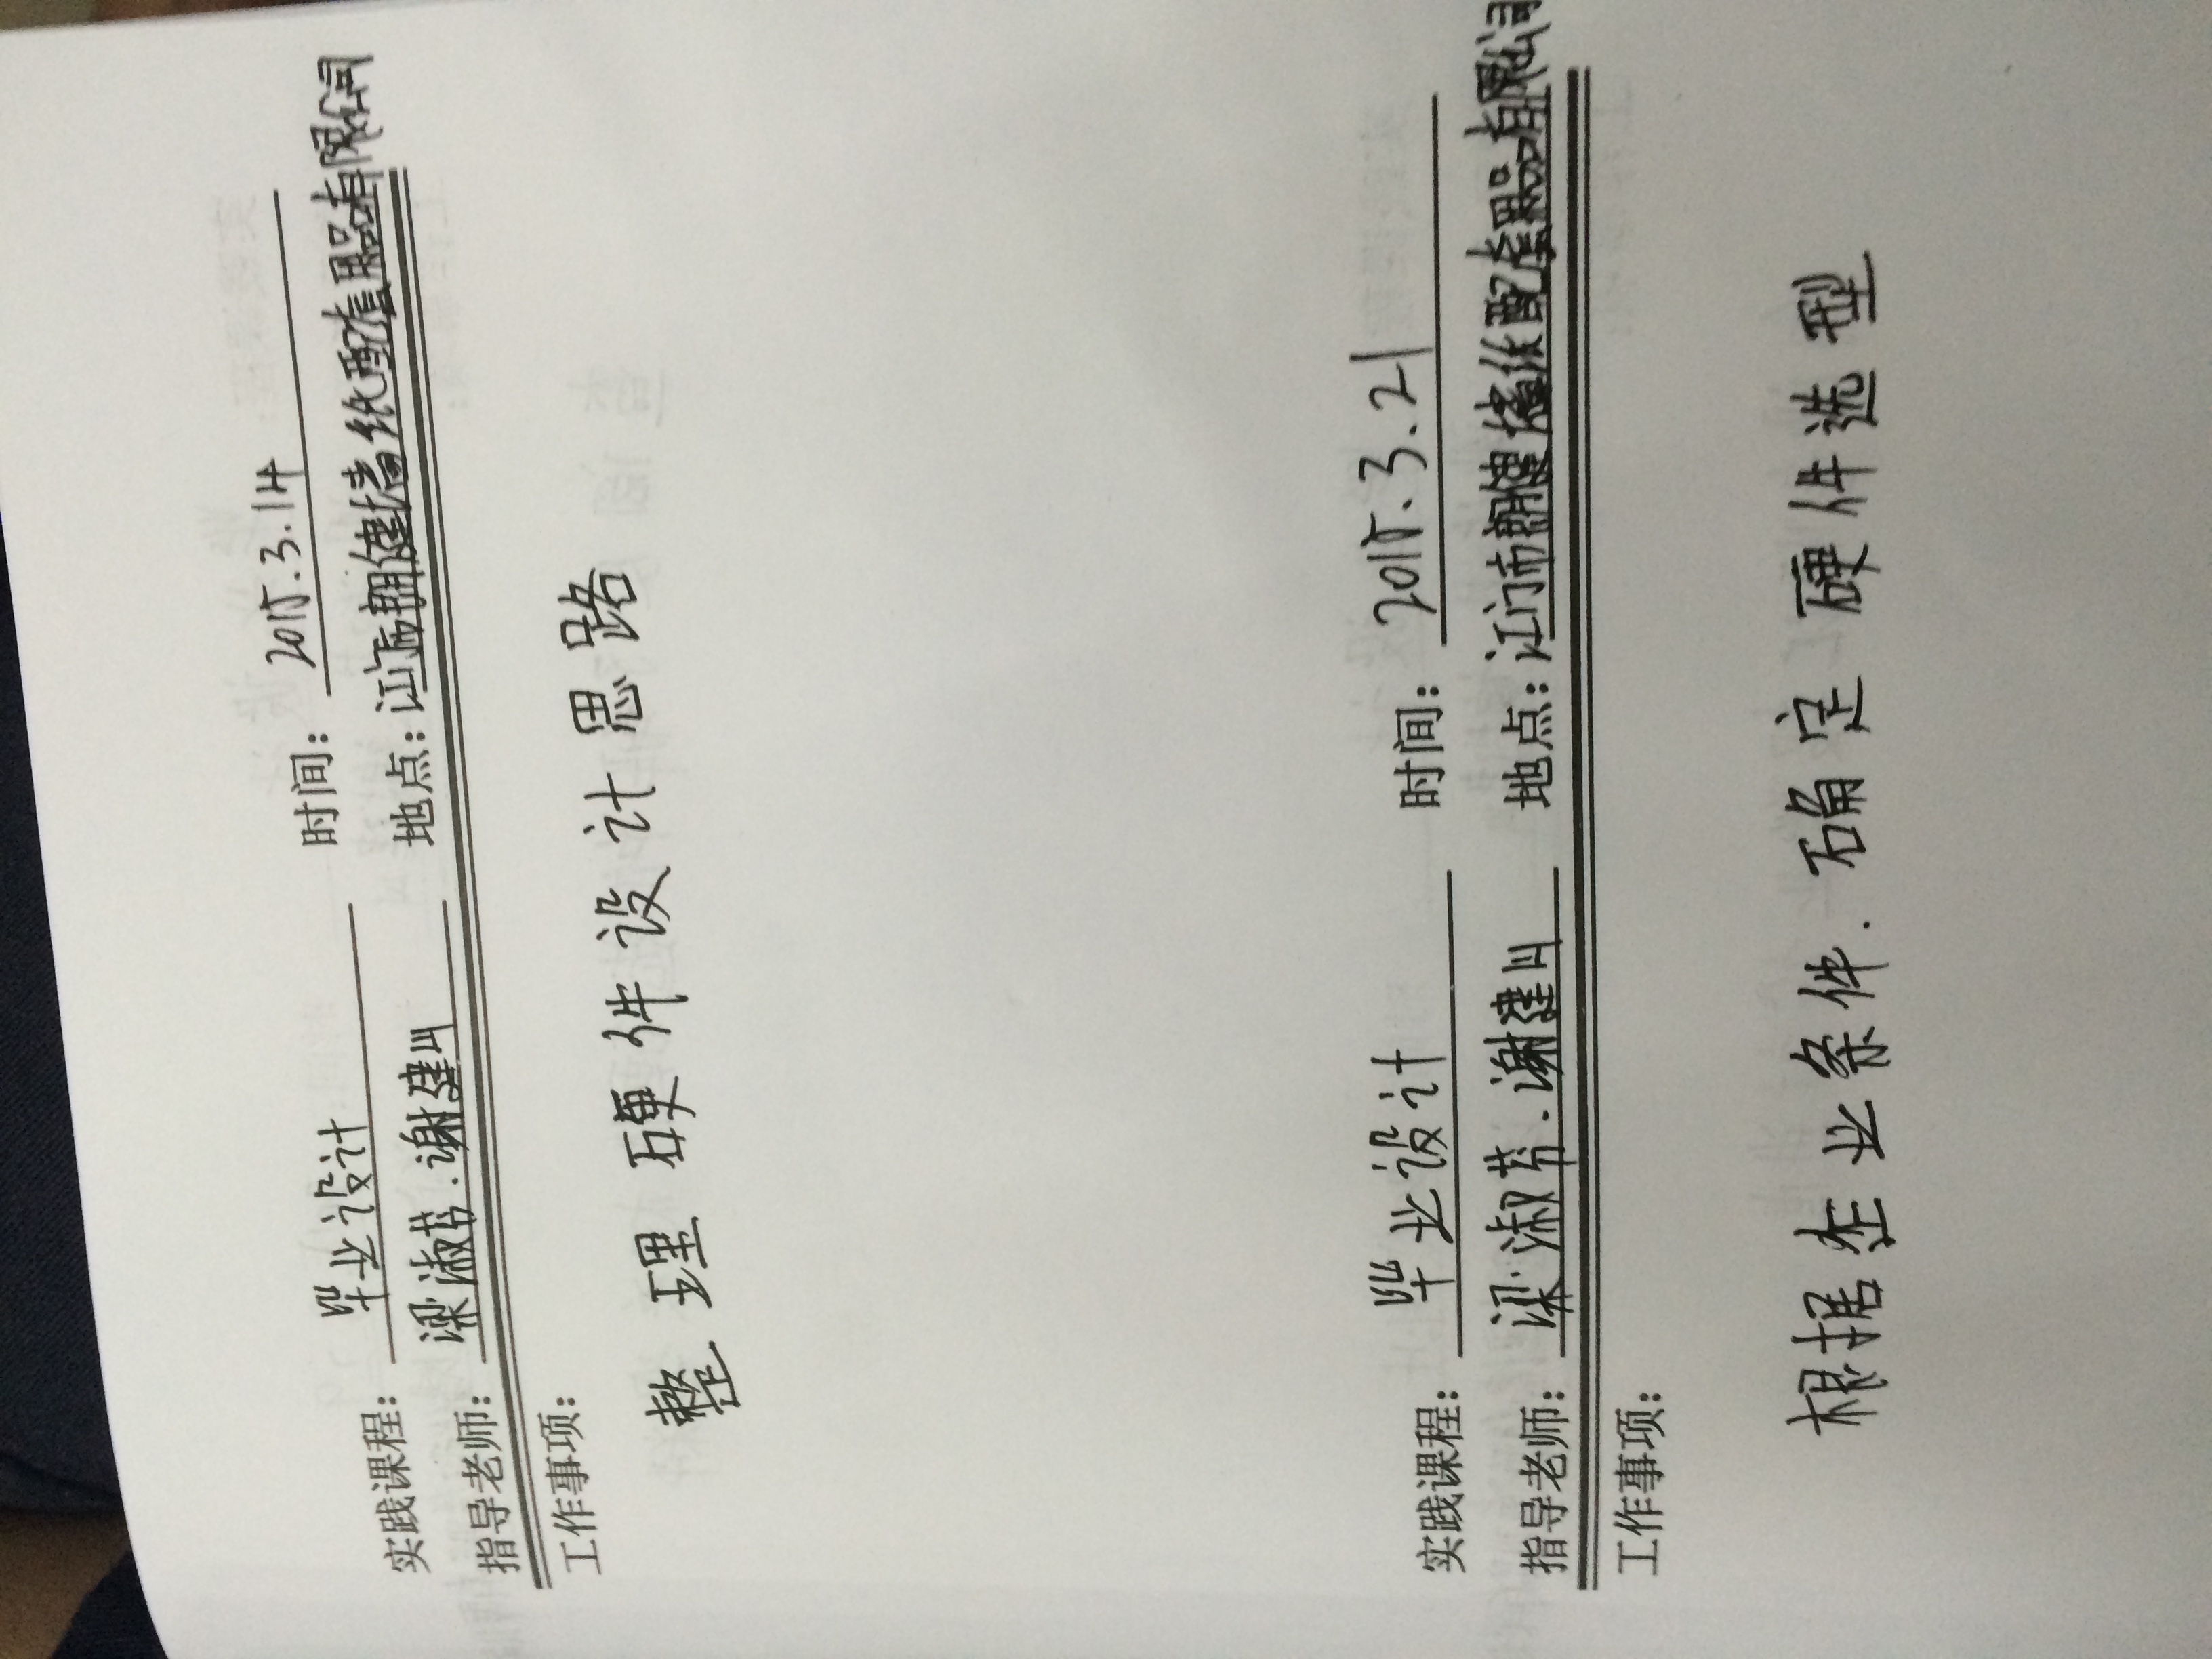 实践课程: 毕业设计 时间: 2015.3.14
指导老师: 梁淑芬.谢建川 地点: 江门市朝健墙纸配套品有限公司
工作事项:
整理硬件设计思路
实践课程: 毕业设计 时间: 2015.3.21
指导老师: 梁淑芬.谢建川 地点: 江门市朝健墙纸配套品有限公司
工作事项:
根据企业条件.确定硬件选型